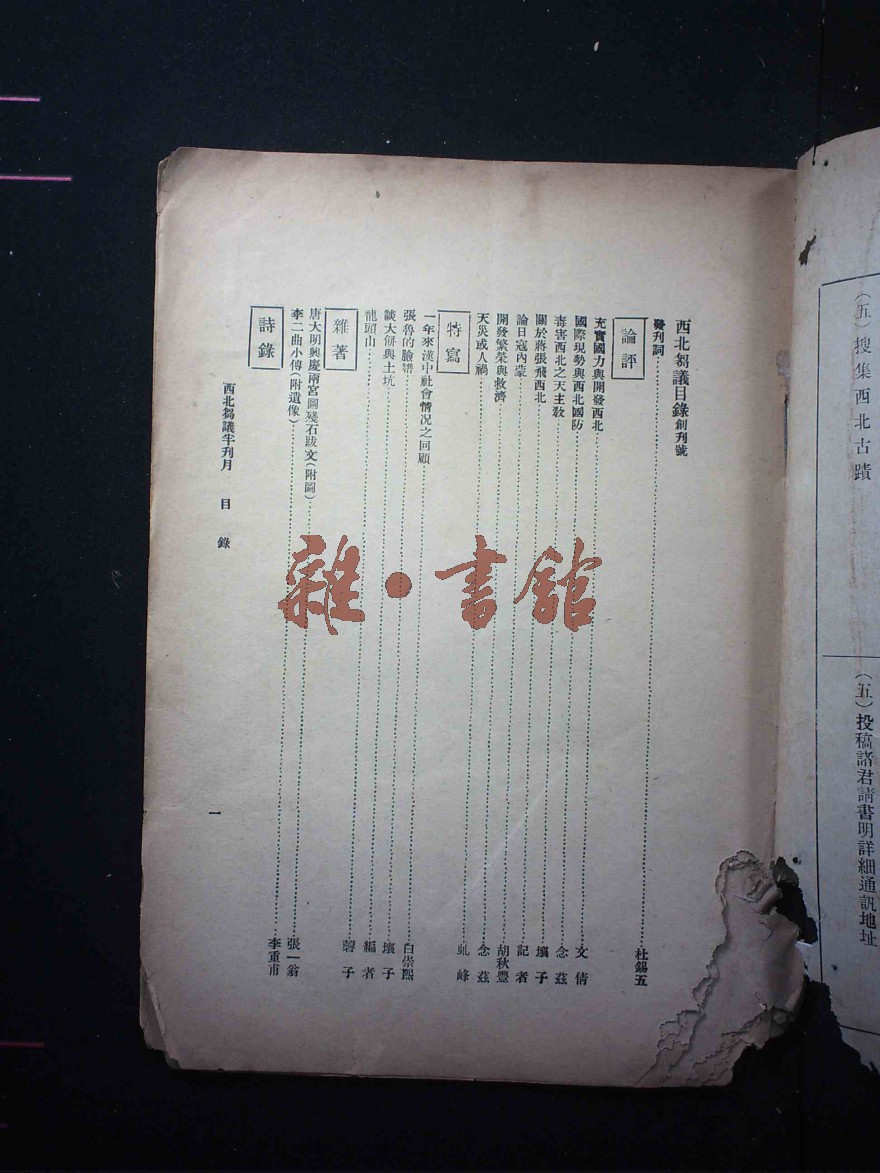 （五）搜集西北古蹟
（五）投稿諸君請書明詳細通訊地址
西北芻議目錄創刊號
發刊詞……杜錫五
論評
充實國力與開發西北……文倩
國際現勢與西北國防……念茲
毒害西北之天主教……壎子
關於蔣張飛西北……記者
論日寇內蒙……胡秋豐
開發繁榮與救濟……念茲
天災或人禍……虬峰
特寫
一年來漢中社會情况之回顧……白崇熙
張魯的臉譜……壎子
談大餅與土坑……編者
龍頭山……磬子
雜著
唐大明興慶兩宮圖殘石跋文（附圖）……張一翁
李二曲小傳（附遺像）……李重甫
詩錄
西北芻議半刊月 目錄
一
雜·書館